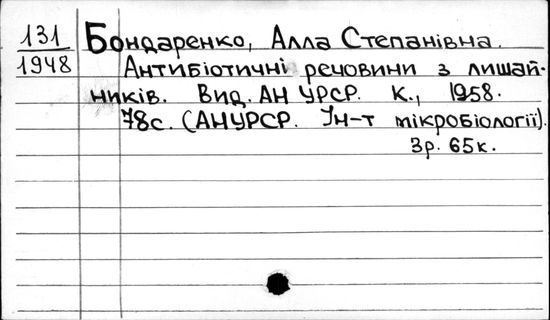 131
1948
Бондаренко, Алла Степанівна.
Антибіотичні речовини з лишай-
ників. Вид. АН УРСР. К., 1958.
78с. (АНУРСР. Ін-т мікробіології).
3р. 65к.